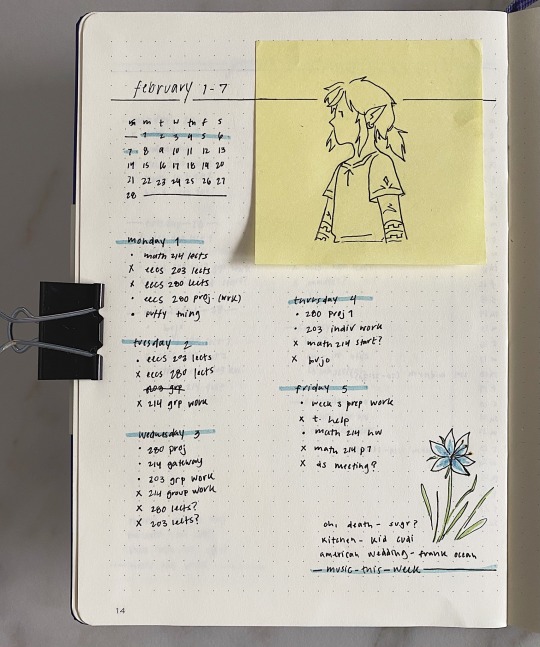 february 1-7
s m t w th f s
— 1 2 3 4 5 6
7 8 9 10 11 12 13
14 15 16 17 18 19 20
21 22 23 24 25 26 27
28
monday 1
• math 214 lects
x eecs 203 lects
x eecs 280 lects
• eecs 280 proj. (work)
• puffy thing
tuesday 2
• eecs 203 lects
x eecs 280 lects
203 grp
x 214 grp work
wednesday 3
• 280 proj
• 214 gateway
• 203 grp work
x 214 group work
x 280 lects?
x 203 lects?
thursday 4
• 280 proj 1
• 203 indiv work
x math 214 start?
x bujo
friday 5
• week 3 prep work
x t. help
• math 214 hw
x math 214 p7
x ds meeting?
oh, death - sugr?
kitchen - kid cudi
american wedding - frank ocean
music-this-week
14